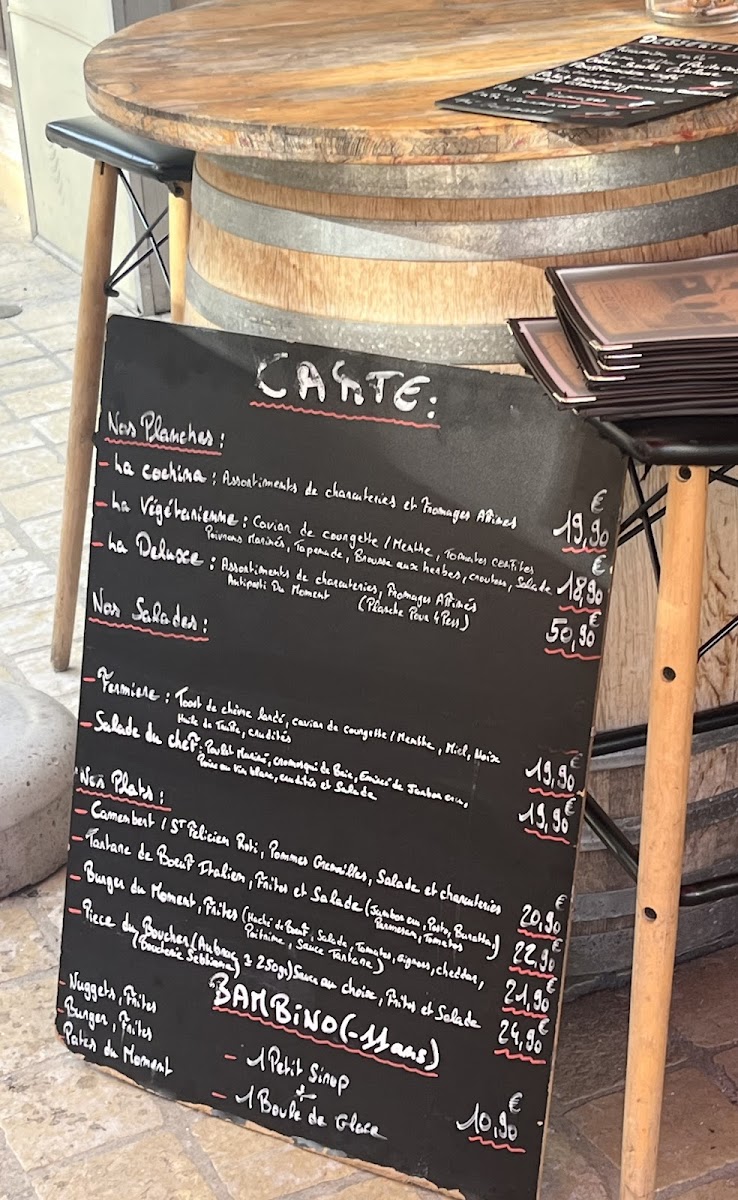 DESSERTS
CARTE:
Nos Planches:
- La cochina: Assortiments de charcuteries et Fromages Affinés 19,90€
- La Végétarienne: Caviar de courgette/Menthe, Tomates confites
Poivrons Marinés, Tapenade, Brousse aux herbes, croutons, Salade 18,90€
- La Deluxe: Assortiments de charcuteries, Fromages Affinés
Antipasti Du Moment (Planche Pour 4 Pers) 50,90€
Nos Salades:
- Fermiere: Toast de chèvre lardé, caviar de courgette/Menthe, Miel, Noix
Huile de Truffe, crudités 19,90€
- Salade du chef: Poulet Mariné, cromesqui de Brie, Emincé de Jambon cru,
Poire au vin blanc, crudités et Salade 19,90€
Nos Plats:
- Camembert / St Félicien Roti, Pommes Grenailles, Salade et charcuteries 20,90€
- Tartare de Bœuf Italien, Frites et Salade (Jambon cru, Pesto, Buratta,
Parmesan, Tomates) 22,90€
- Burger du Moment, Frites (Haché de Bœuf, Salade, Tomates, oignons, cheddar,
Poitrine, Sauce Tartare) 21,90€
- Piece du Boucher (Aubrac ± 250gr) Sauce au choix, Frites et Salade
(Boucherie Sebbiana) 24,90€
BAMBiNO (-11ans)
- Nuggets, Frites
- Burger, Frites
- Pates du Moment
- 1 Petit Sirop
+
- 1 Boule de Glace 10,90€